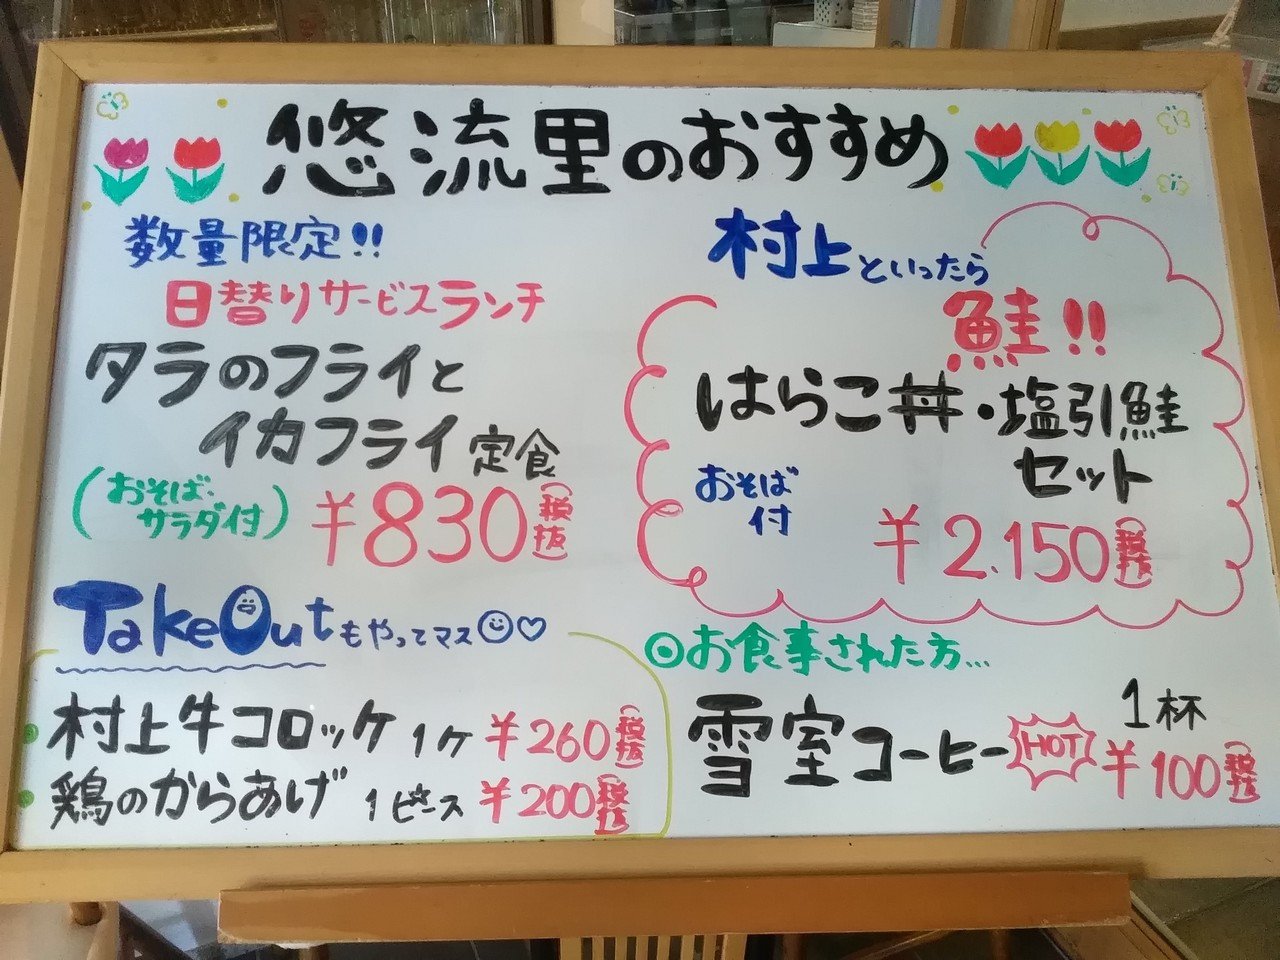 悠流里のおすすめ
数量限定!!
日替りサービスランチ
タラのフライと
イカフライ定食
(おそば、
サラダ付)
¥830(税抜)
村上といったら
鮭!!
はらこ丼・塩引鮭
セット
おそば
付
¥2.150(税抜)
TakeOutもやってマス
村上牛コロッケ 1ケ ¥260(税抜)
鶏のからあげ 1ピース ¥200(税抜)
お食事された方…
雪室コーヒー HOT
1杯
¥100(税抜)